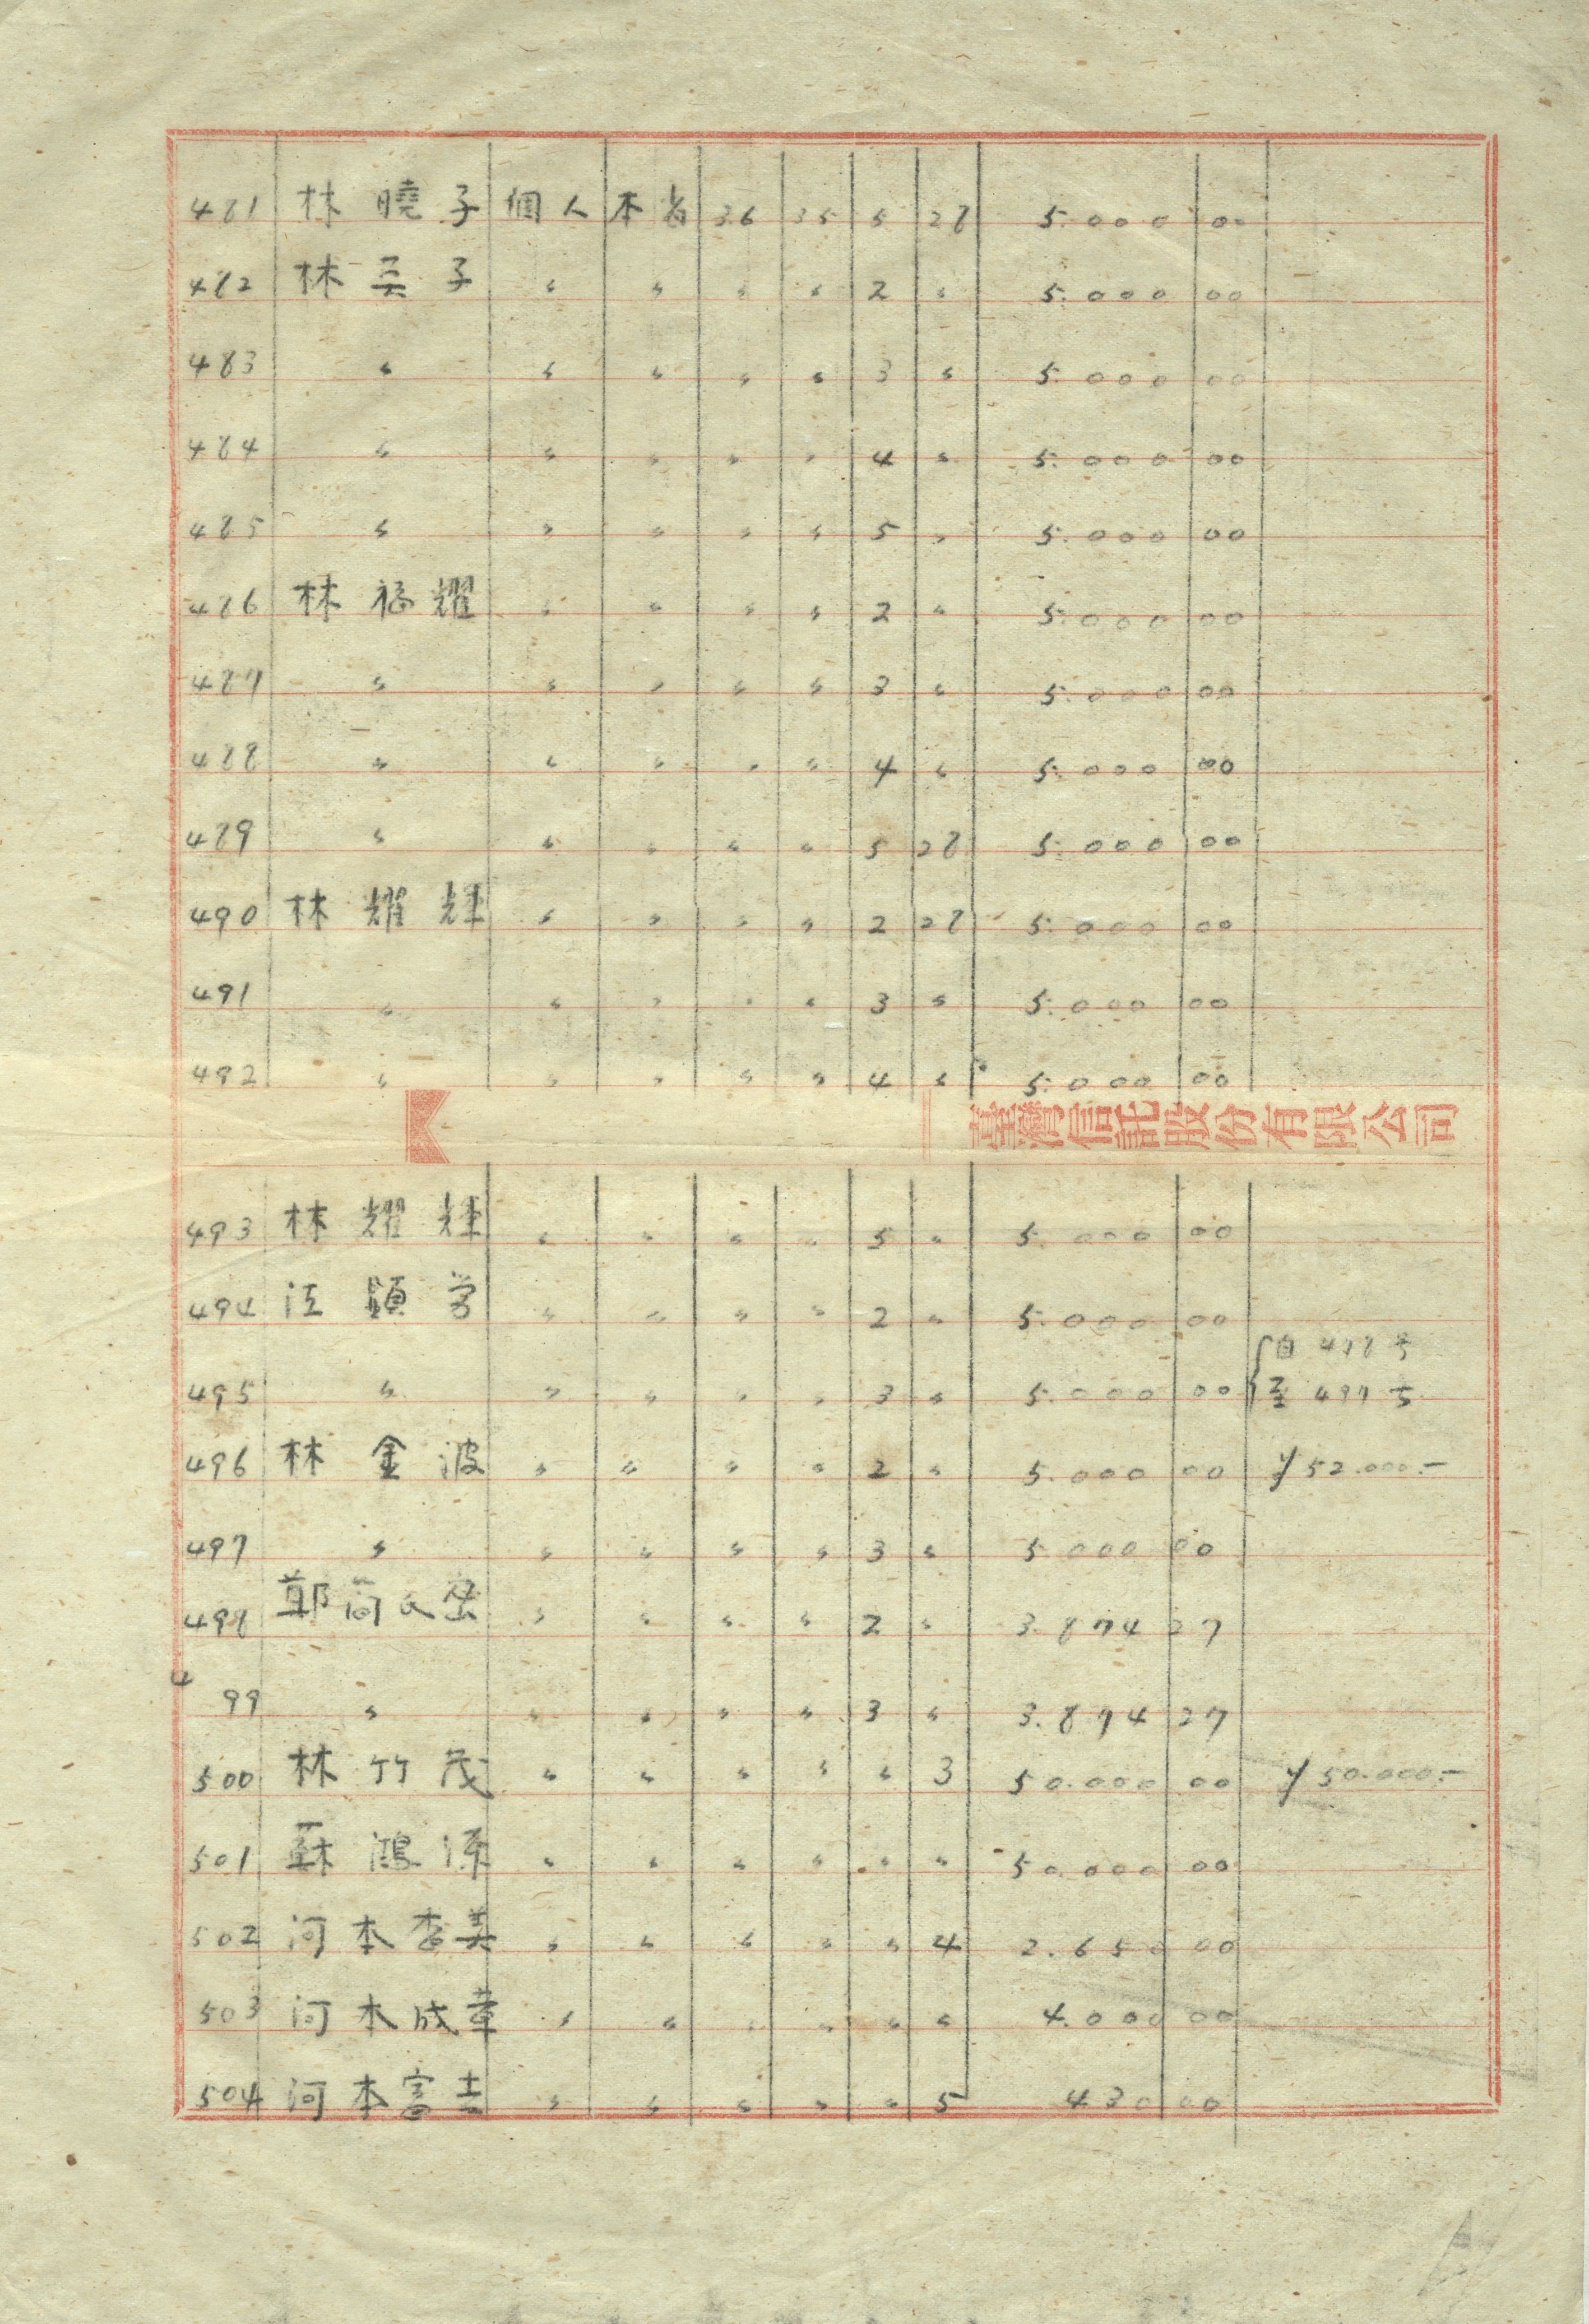 481 林曉子 個人 本省 36 35 5 28 5.000 00
482 林英子 〃 〃 〃 〃 2 〃 5.000 00
483 〃 〃 〃 〃 〃 3 〃 5.000 00
484 〃 〃 〃 〃 〃 4 〃 5.000 00
485 〃 〃 〃 〃 〃 5 〃 5.000 00
486 林福耀 〃 〃 〃 〃 2 〃 5.000 00
487 〃 〃 〃 〃 〃 3 〃 5.000 00
488 〃 〃 〃 〃 〃 4 〃 5.000 00
489 〃 〃 〃 〃 〃 5 28 5.000 00
490 林耀輝 〃 〃 〃 〃 2 28 5.000 00
491 〃 〃 〃 〃 〃 3 〃 5.000 00
492 〃 〃 〃 〃 〃 4 〃 5.000 00
臺灣信託股份有限公司
493 林耀輝 〃 〃 〃 〃 5 〃 5.000 00
494 江 〃 〃 〃 〃 2 〃 5.000 00
自 478号
495 〃 〃 〃 〃 〃 3 〃 5.000 00 至 497号
496 林金波 〃 〃 〃 〃 2 〃 5.000 00 ¥52.000.-
497 〃 〃 〃 〃 〃 3 〃 5.000 00
498 鄭简氏 〃 〃 〃 〃 2 〃 3.874 27
499 〃 〃 〃 〃 〃 3 〃 3.874 27
500 林竹茂 〃 〃 〃 〃 〃 3 50.000 00 ¥50.000.-
501 蘇鴻源 〃 〃 〃 〃 〃 〃 50.000 00
502 河本杏美 〃 〃 〃 〃 〃 4 2.650 00
503 河本成章 〃 〃 〃 〃 〃 〃 4.000 00
504 河本富吉 〃 〃 〃 〃 〃 5 430 00